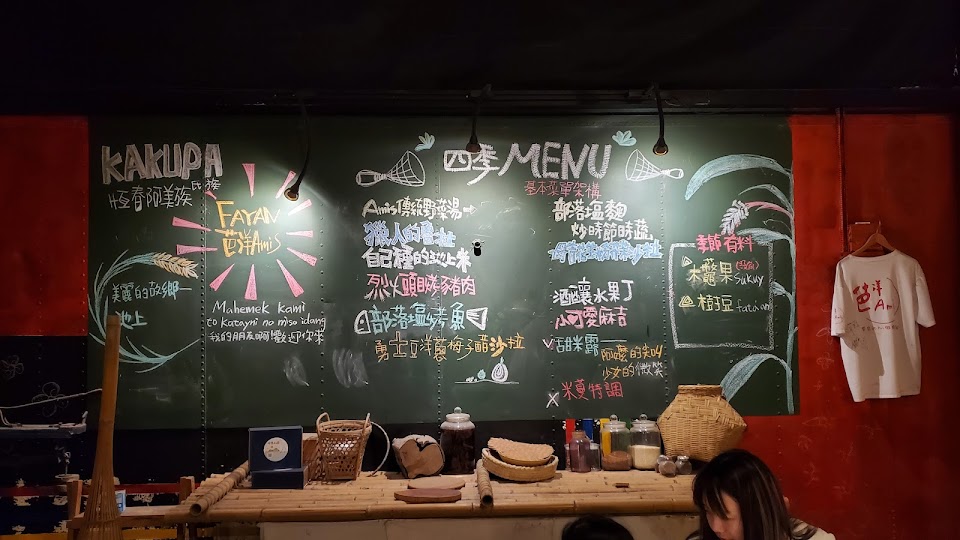 KAKUPA
恆春阿美族 民族
FAYAN
芭洋Amis
美麗的故鄉—
池上
Mahemek kami
to Katayni no miso idang
我的朋友啊!歡迎你來
四季MENU
基本菜單架構
Amis傳統野菜湯
獵人的
自己種的池上米
烈火頭目烤豬肉
部落塩烤魚
勇士豆洋蔥梅子醋沙拉
部落塩麴
炒時節時蔬
酒釀水果丁
小可愛麻吉
甜米露—
阿嬤的尖叫
少女的微笑
米蔓特調
季節有料
木虌果 Sukuy
樹豆 fataan
芭洋
Amis